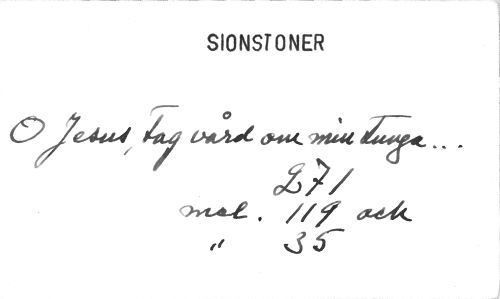 SIONSTONER
O Jesus, tag vård om min tunga...
271
mel. 119 och
" 35